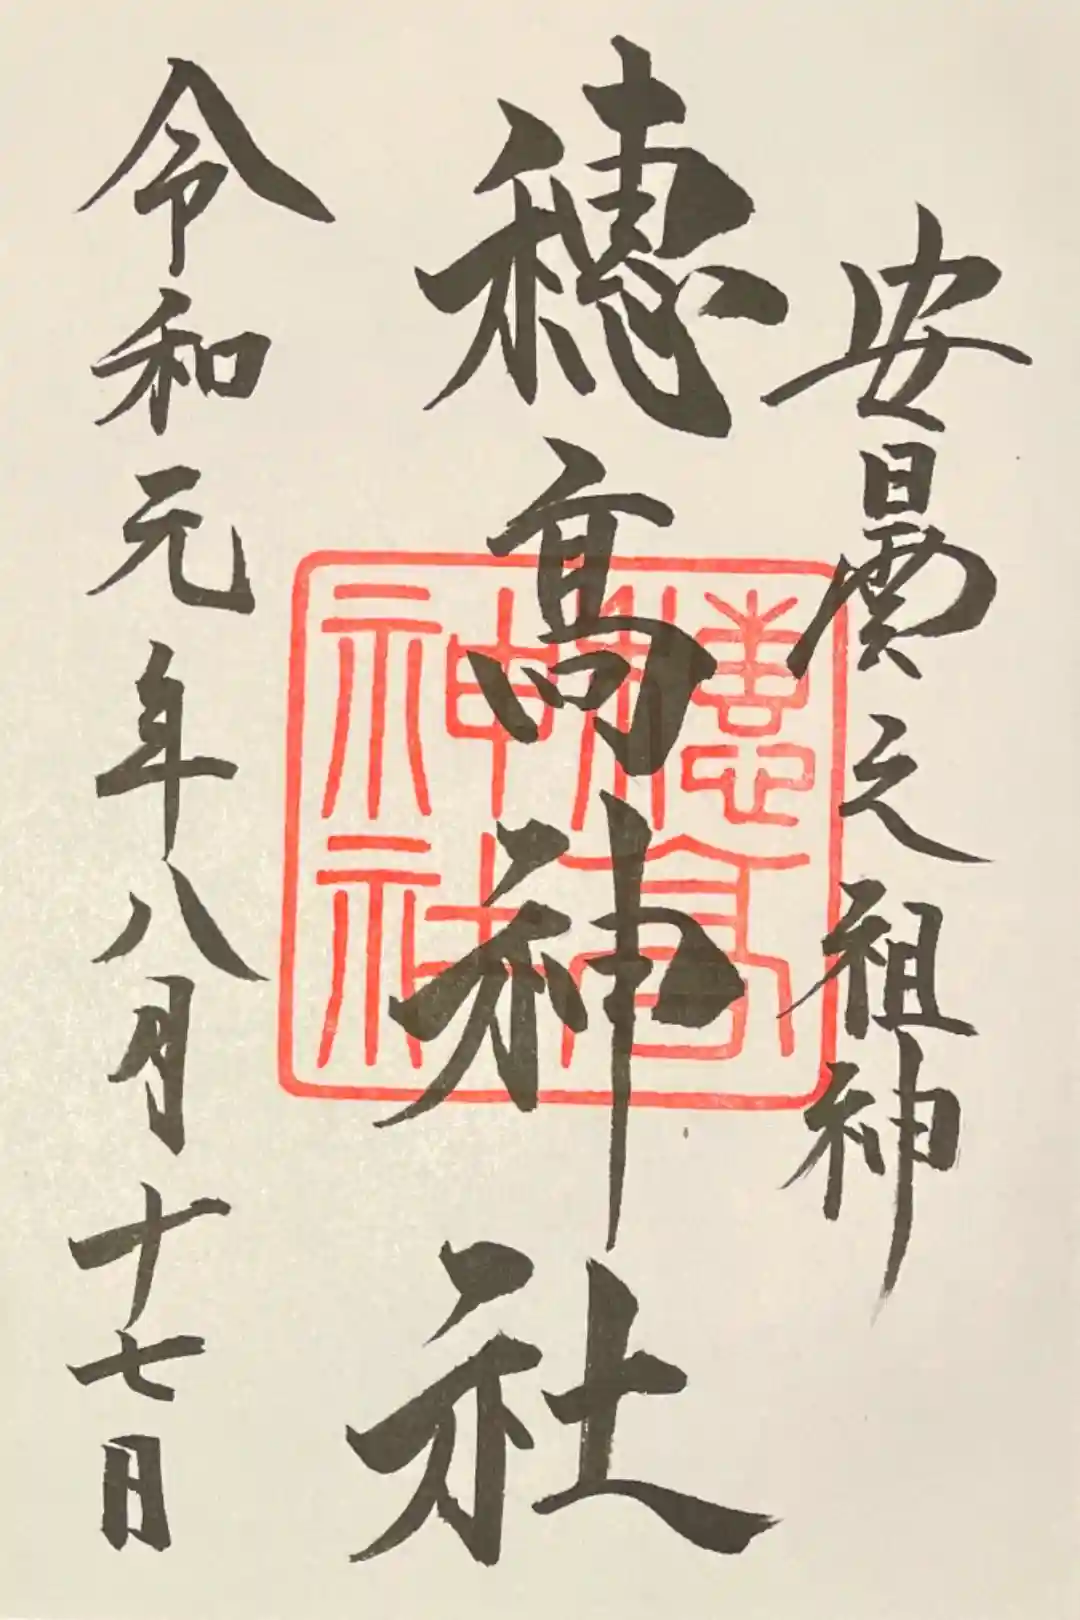 安曇之祖神
穂髙神社
穂高神社
令和元年八月十七日